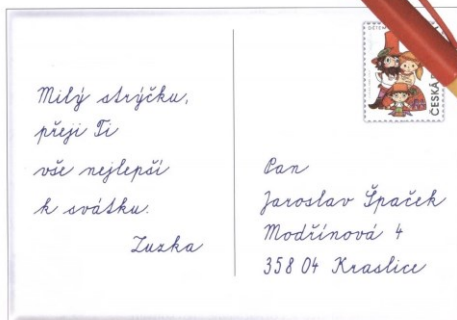 Milý strýčku,
přeji Ti
vše nejlepší
k svátku.
Zuzka
DĚTEM
ČESKÁ
Pan
Jaroslav Špaček
Modřínová 4
358 04 Kraslice